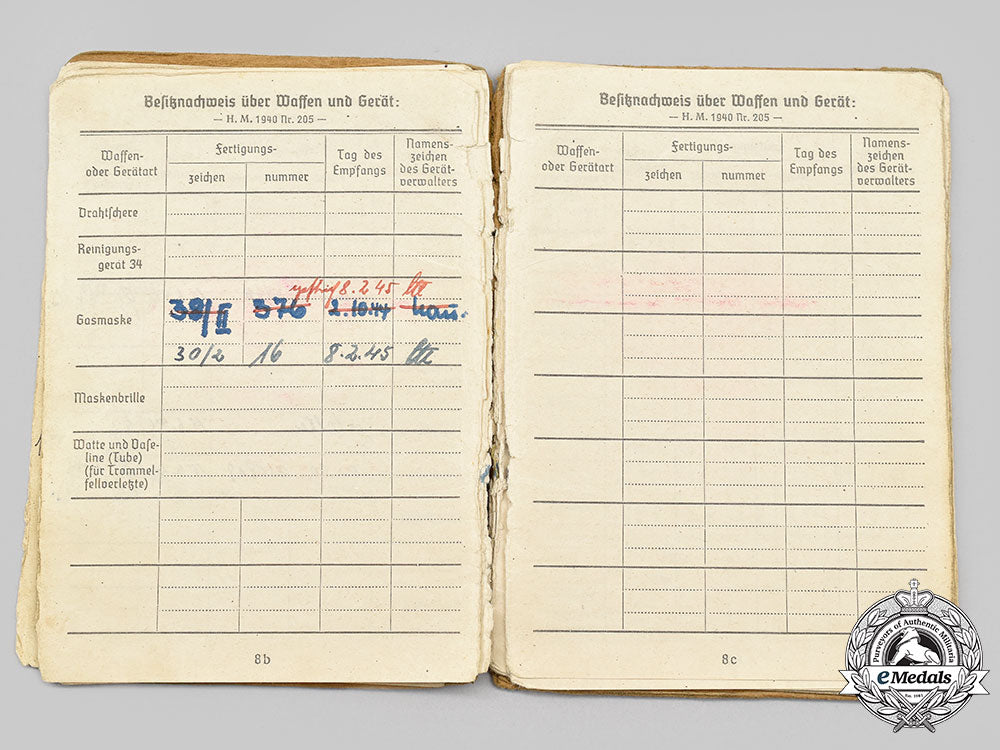 Besitznachweis über Waffen und Gerät:
— H. M. 1940 Nr. 205 —
Waffen-
oder Gerätart
Fertigungs-
zeichen
nummer
Tag des
Empfangs
Namens-
zeichen
des Gerät-
verwalters
Drahtschere
Reinigungs-
gerät 34
8.2.45
Gasmaske
38/II 376 2.10.44
30/2 16 8.2.45
Maskenbrille
Watte und Vase-
line (Tube)
(für Trommel-
fellverletzte)
8b
Besitznachweis über Waffen und Gerät:
— H. M. 1940 Nr. 205 —
Waffen-
oder Gerätart
Fertigungs-
zeichen
nummer
Tag des
Empfangs
Namens-
zeichen
des Gerät-
verwalters
8c
Purveyors of Authentic Militaria
eMedals